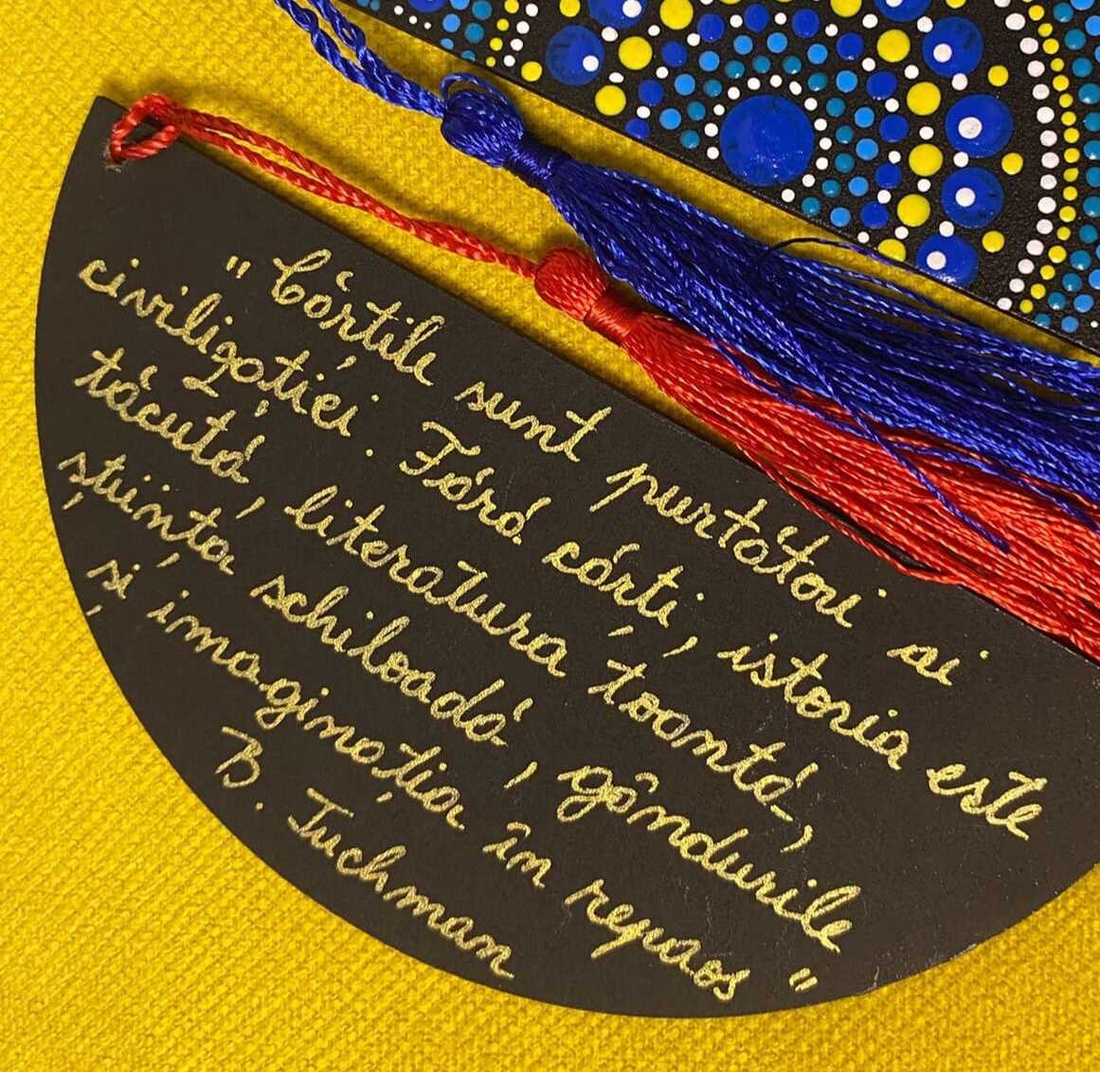 "Cărțile sunt purtători ai
civilizației. Fără cărți, istoria este
tăcută, literatura toomtă,
știința schiloadă, gândurile
și imaginația în repaos"
B. Tuchman